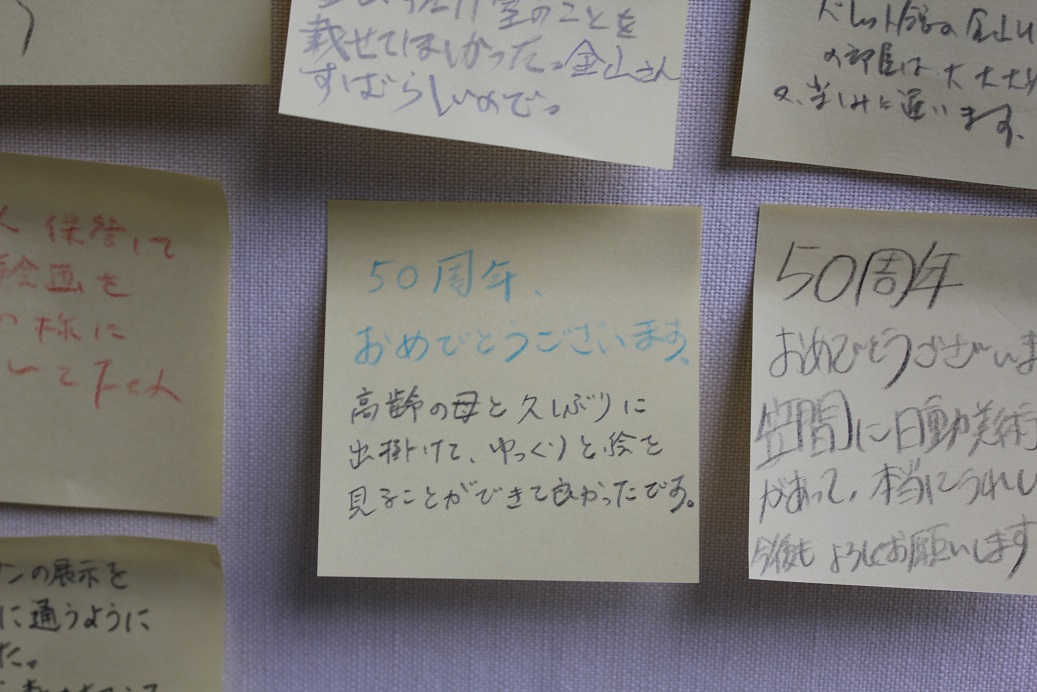 載せてほしかった。金山さん
すばらしいので。
の部屋は大大大
楽しみに通います。
保管して
絵画を
様に
50周年、
おめでとうございます。
高齢の母と久しぶりに
出掛けて、ゆっくりと絵を
見ることができて良かったです。
50周年
おめでとうございま
笠間に日動美術
があって、本当にうれし
今後もよろしくお願いします
ンの展示を
に通うように
た。